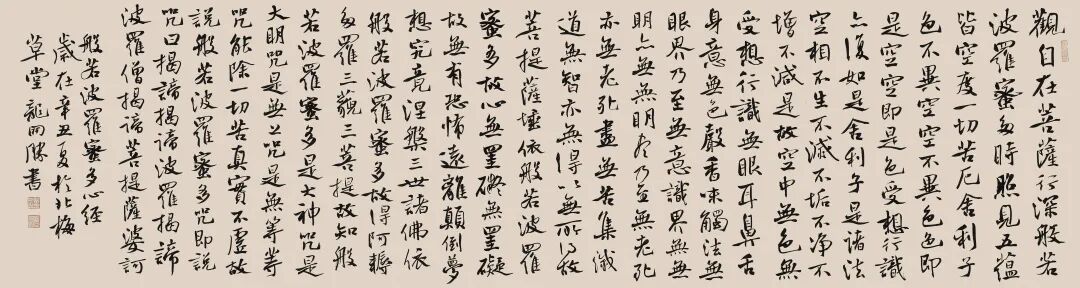 觀自在菩薩行深般若
波羅蜜多時照見五蘊
皆空度一切苦厄舍利子
色不異空空不異色色即
是空空即是色受想行識
亦復如是舍利子是諸法
空相不生不滅不垢不净不
增不減是故空中無色無
受想行識無眼耳鼻舌
身意無色聲香味觸法無
眼界乃至無意識界無無
明亦無無明盡乃至無老死
亦無老死盡無苦集滅
道無智亦無得以無所得故
菩提薩埵依般若波羅
蜜多故心無罣礙無罣礙
故無有恐怖遠離顛倒夢
想究竟涅槃三世諸佛依
般若波羅蜜多故得阿耨
多羅三藐三菩提故知般
若波羅蜜多是大神咒是
大明咒是無上咒是無等等
咒能除一切苦真實不虛故
說般若波羅蜜多咒即說
咒曰揭諦揭諦波羅揭諦
波羅僧揭諦菩提薩婆訶
般若波羅蜜多心經
歲在辛丑夏於北梅
草堂龍開勝書